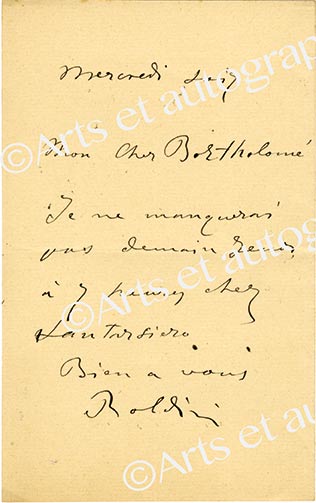 Mercredi soir
Mon cher Bartholomé
Je ne manquerai
pas demain
à 7 heures chez
Bien a vous
Boldini
©Arts et autographes
©Arts et autographes
©Arts et autographes